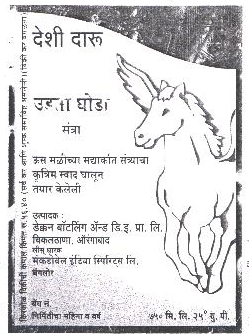 देशी दारू
उडता घोडा
संत्रा
ऊस मळीच्या मद्यार्कात संत्र्याचा
कृत्रिम स्वाद घालून
तयार केलेली
उत्पादक :
डेक्कन बॉटलिंग ॲन्ड डि.इ. प्रा. लि.
चिकलठाणा, औरंगाबाद
मॅकडॉवेल इंडिया स्पिरिट्स लि.
बेंगलोर
बॅच नं.
निर्मितीचा महिना व वर्ष
७५० मि. लि. २५° यु. पी.